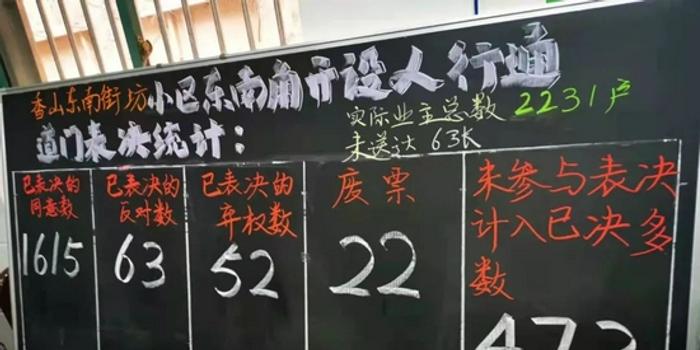 香山东南街坊小区东南角开设人行通
道门表决统计：
实际业主总数 2231户
未送达 63长
已表决的
同意数
1615
已表决的
反对数
63
已表决的
弃权数
52
废票
22
未参与表决
计入已决多
数
473